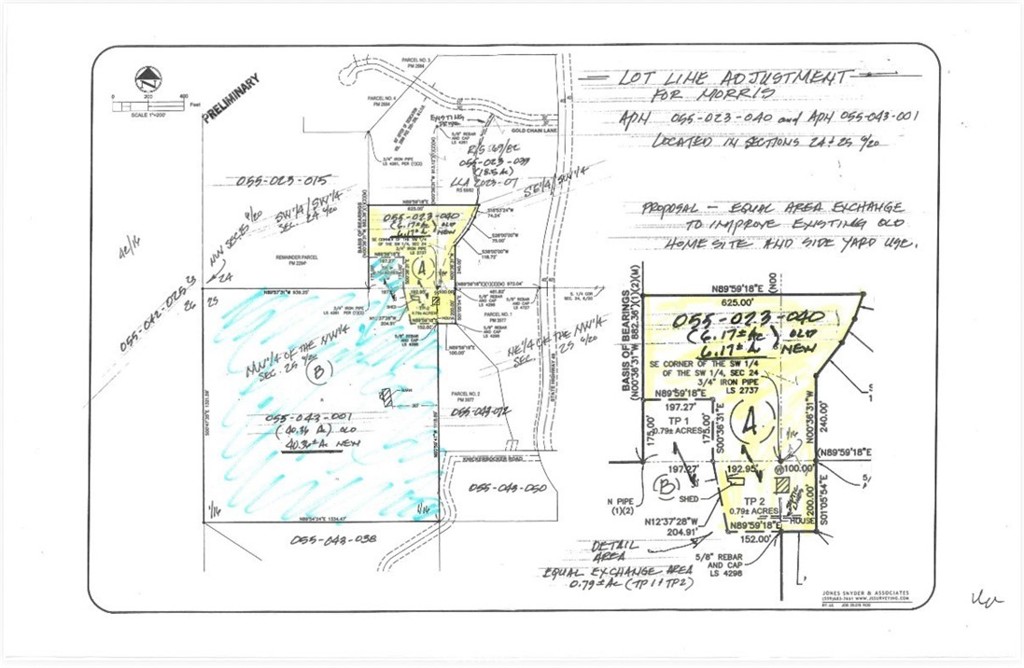 LOT LINE ADJUSTMENT
FOR MORRIS
APN 055-023-040 and APN 055-043-001
LOCATED IN SECTIONS 24 & 25 6/20
PROPOSAL - EQUAL AREA EXCHANGE
TO IMPROVE EXISTING OLD
HOME SITE AND SIDE YARD USE.
0 200 400
Feet
SCALE 1"=200'
PRELIMINARY
PARCEL NO. 3
PARCEL NO. 4
GOLD CHAIN LANE
5/8" REBAR
AND CAP
055-023-039
LLA 2023-07
055-023-015
SW 1/4 SW 1/4
SEC. 24 6/20
SE 1/4 SW 1/4
REMAINDER PARCEL
24
25
055-042-025
N89°59'18"E
625.00'
055-023-040
(6.17±Ac) OLD
6.17±Ac NEW
BASIS OF BEARINGS
SE CORNER OF THE SW 1/4
OF THE SW 1/4, SEC 24
3/4" IRON PIPE
LS 2737
A
SHED
PARCEL NO. 1
NE 1/4 OF THE NW 1/4
SEC. 25 6/20
NW 1/4 OF THE NW 1/4
SEC. 25 6/20
B
BARN
055-043-001
(40.36 Ac) OLD
40.36±Ac NEW
PARCEL NO. 2
055-044-012
KNICKERBOCKER ROAD
055-043-050
1/16
1/16
055-043-038
N89°59'18"E
(N00
625.00'
055-023-040
(6.17±Ac) OLD
6.17±Ac NEW
BASIS OF BEARINGS
(N00°36'31"W 882.36')(2)(M)
SE CORNER OF THE SW 1/4
OF THE SW 1/4, SEC 24
3/4" IRON PIPE
LS 2737
N89°59'18"E
197.27'
TP 1
0.79± ACRES
175.00'
175.00'
S00°36'31"E
A
N00°36'31"W
240.00'
197.27'
192.95'
100.00'
(N89°59'18"E
B
SHED
N PIPE
(1)(2)
TP 2
0.79± ACRES
HOUSE
200.00'
S01°05'54"E
N12°37'28"W
204.91'
N89°59'18"E
152.00'
DETAIL
AREA
5/8" REBAR
AND CAP
LS 4298
EQUAL EXCHANGE AREA
0.79±Ac (TP1 & TP2)
JONES SNYDER & ASSOCIATES